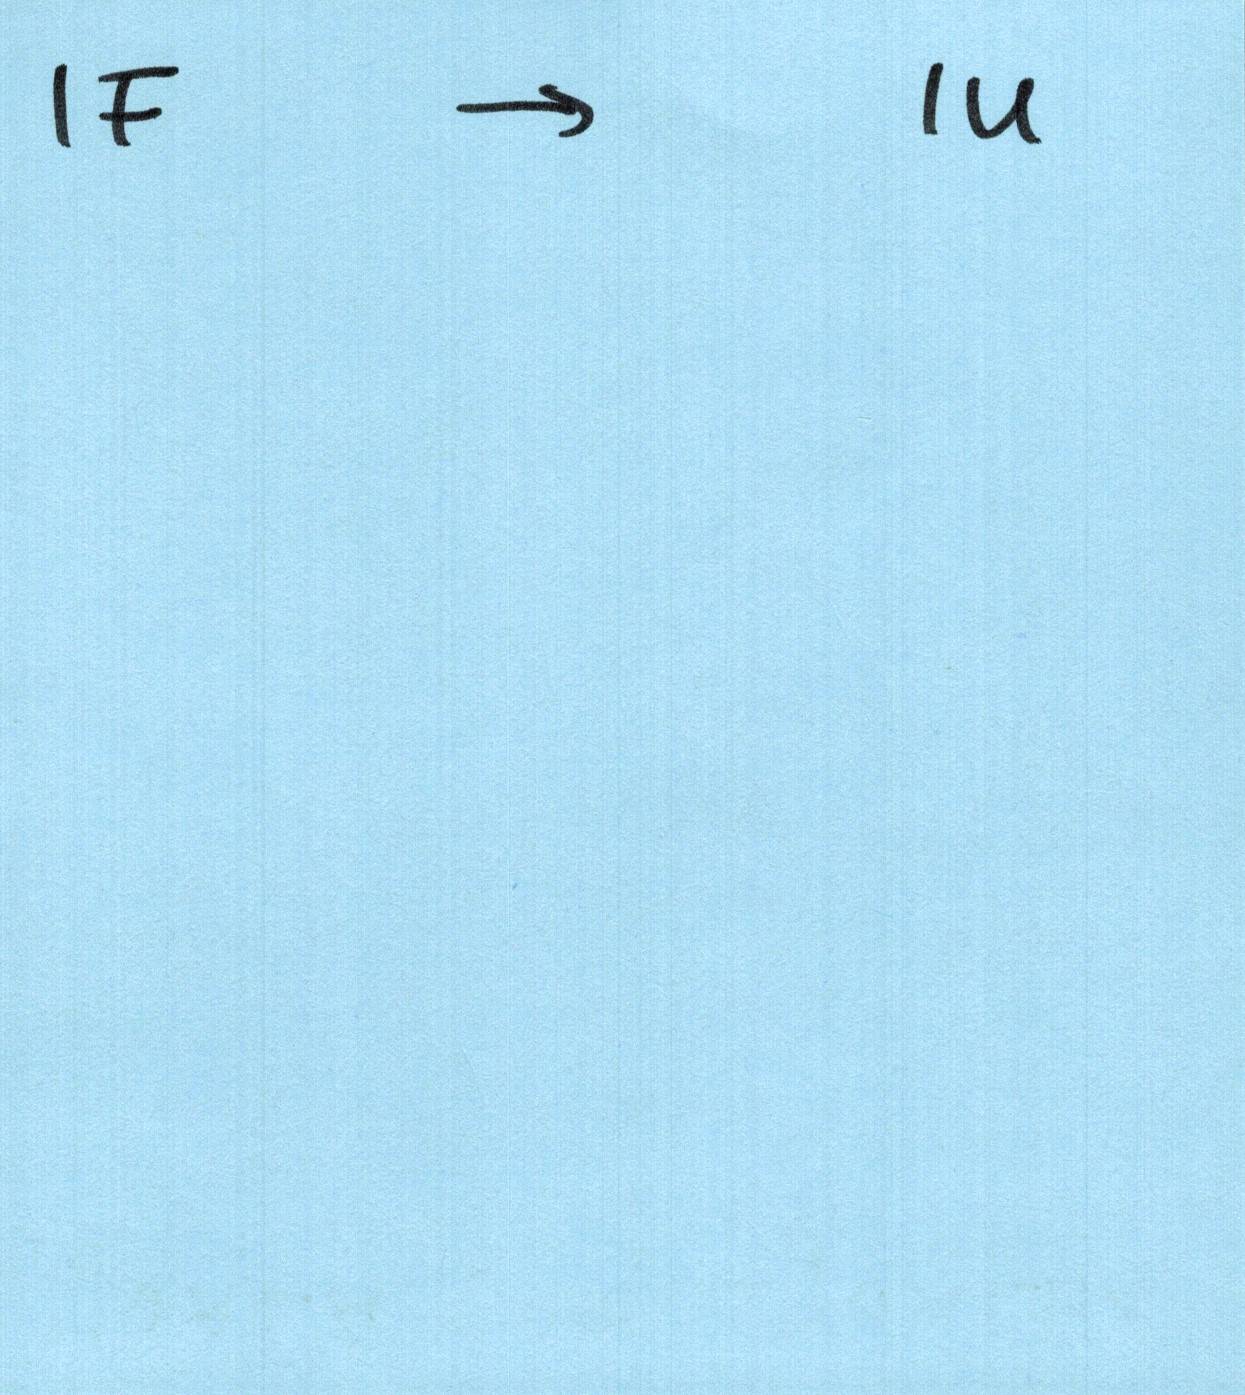 1F → 1U